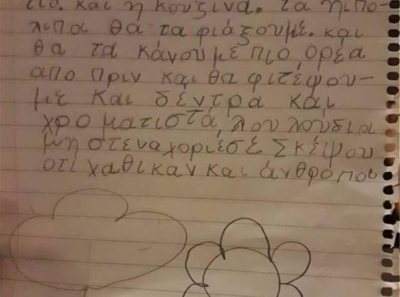 πιο. και η κουζινα. τα ηιπο-
λιπα θα τα φιάξουμε. και
θα τα κάνουμε πιο ορέα
απο πριν και θα φιτέψου-
με και δέντρα και
χρο ματιστά, λου λούδια
μη στεναχοριέσε Σκέψου
οτι χαθικαν και άνθρόποι